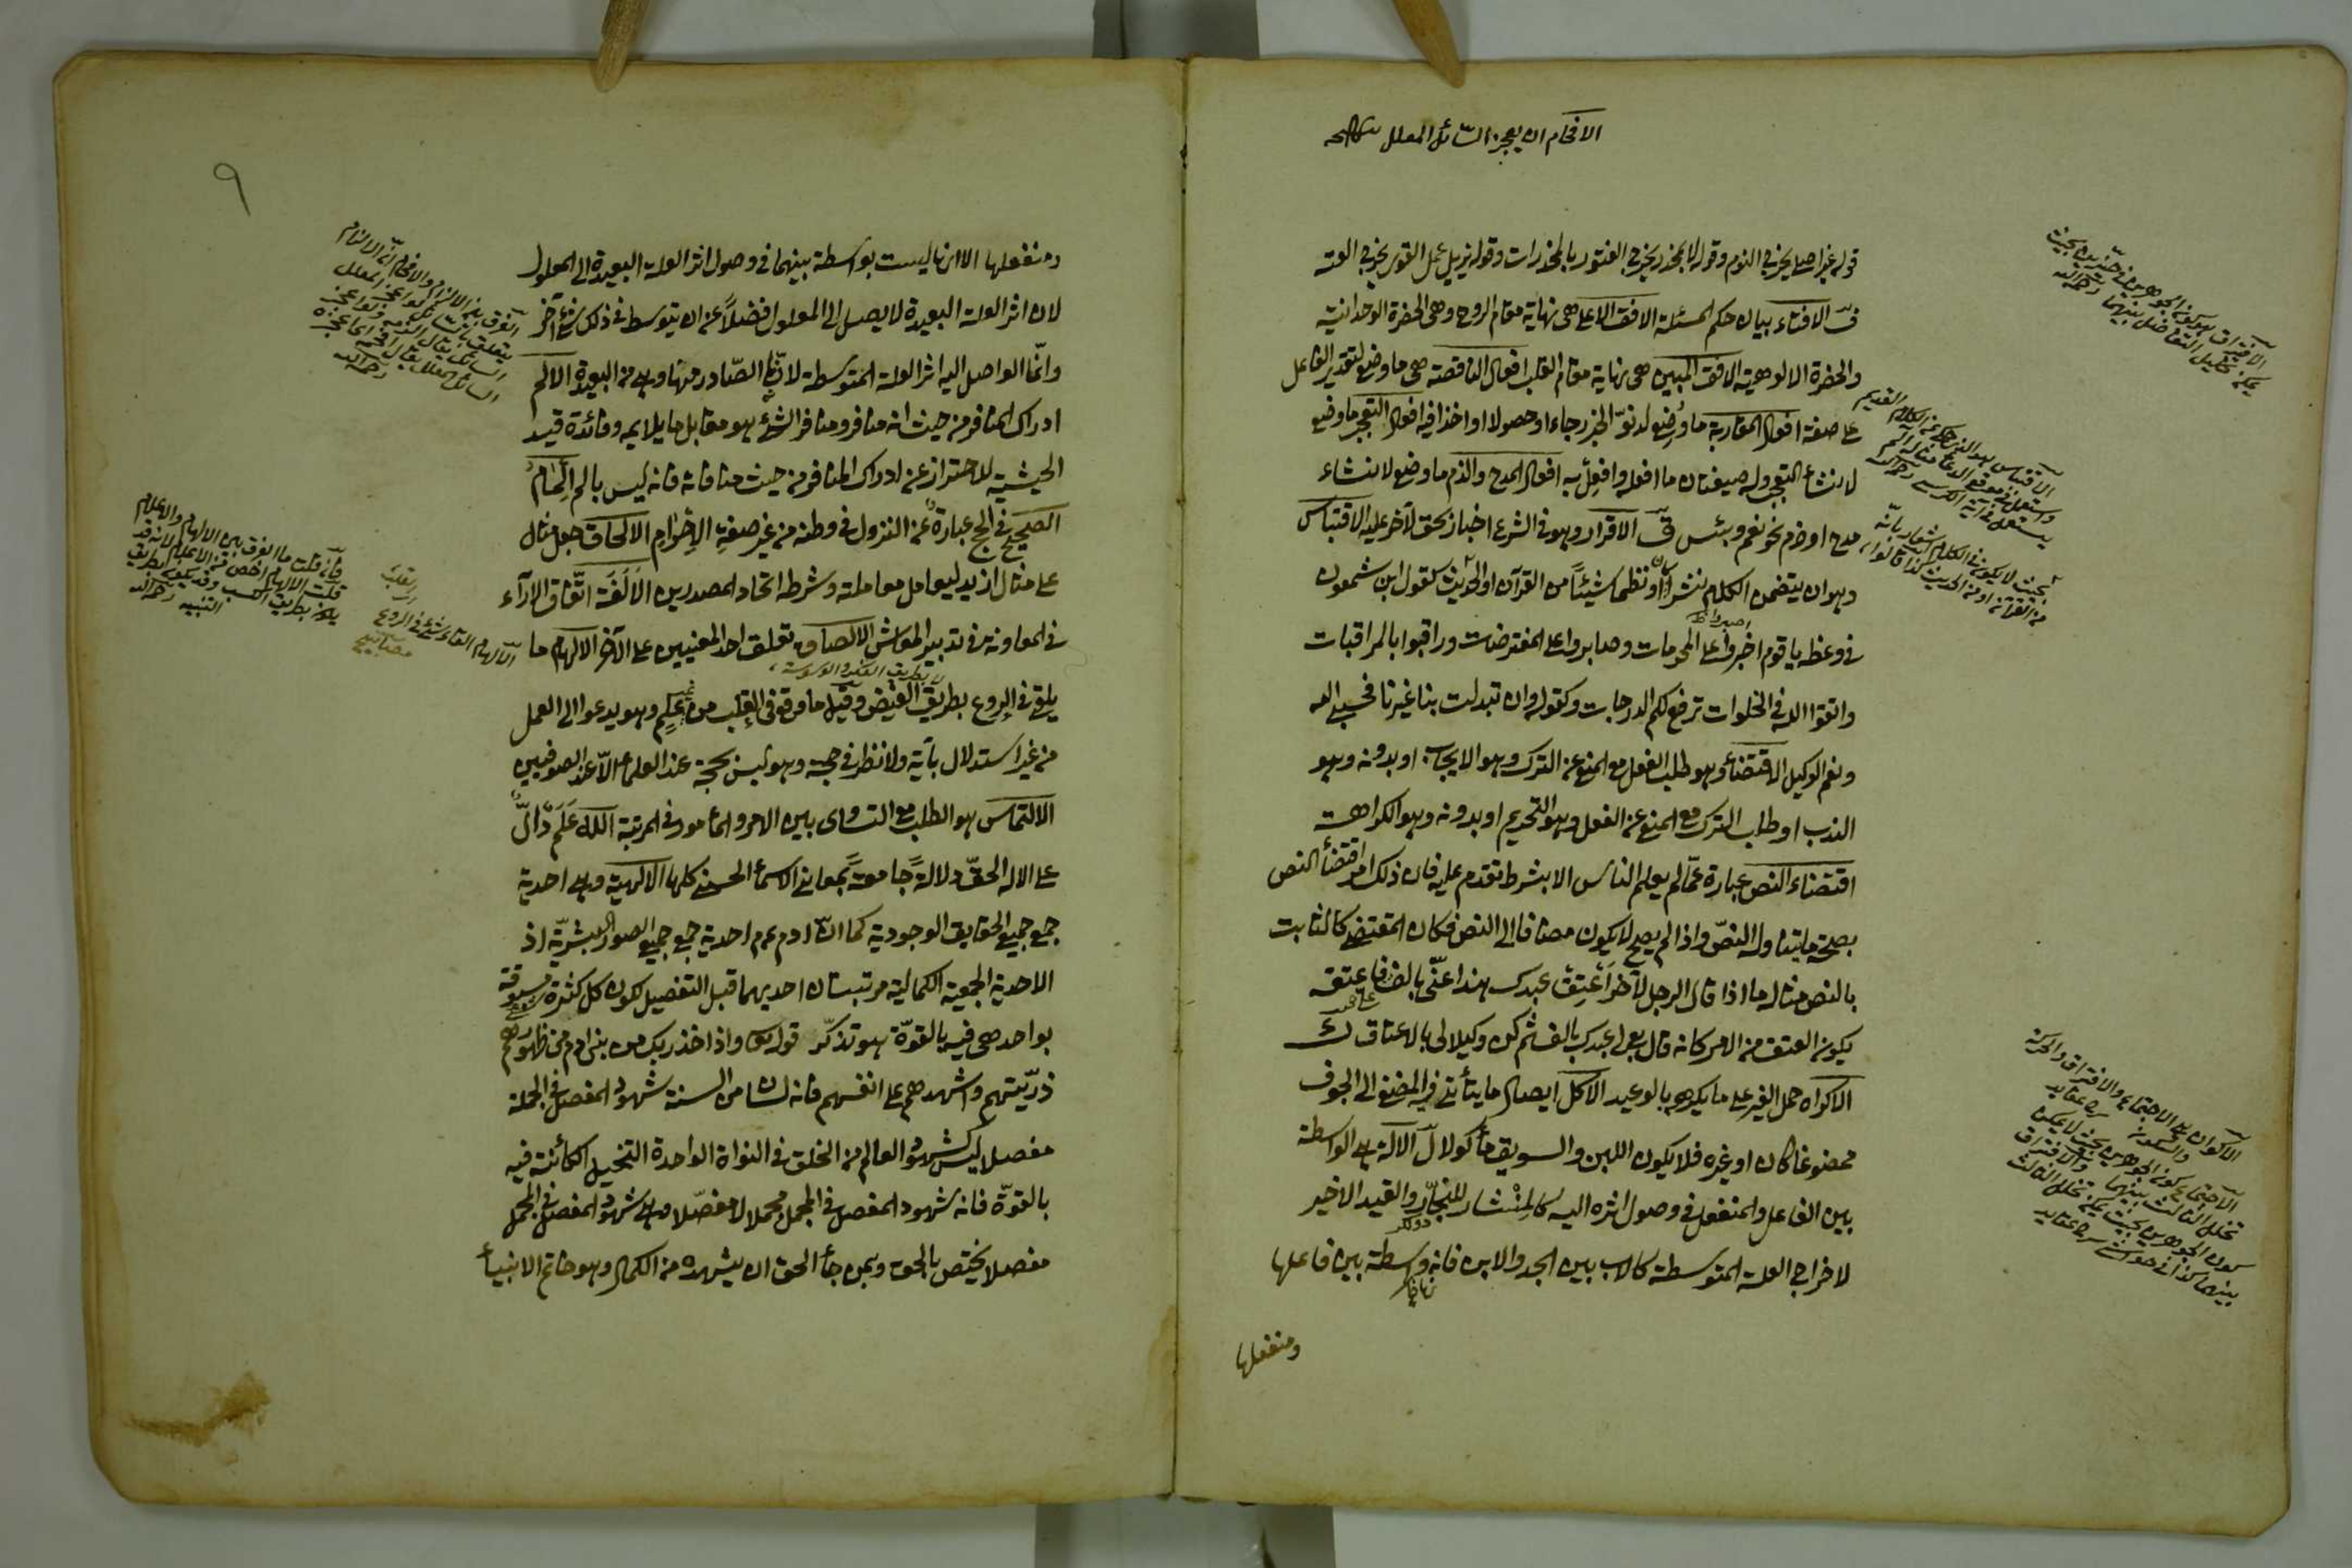 الافحام ان يعجز السائل المعلل
قوله غير اصلي يخرج النوم وقوله لا بمخدر يخرج الفتور بالمخدرات وقوله يزيل عمل القوى يخرج العته
ق الافتاء بيان حكم المسئلة الافق الاعلى هى نهاية مقام الروح وهى الحضرة الوحدانية
والحضرة الالوهية الافق المبين هى نهاية مقام القلب افعال الناقصة هى ما وضع لتقدير الفاعل
على صفة افعال المقاربة ما وضع لدنو الخبر رجاء او حصولا او اخذا فيه افعال التعجب ما وضع
لانشاء التعجب وله صيغتان ما افعله وافعل به افعال المدح والذم ما وضع لانشاء
مدح او ذم نحو نعم وبئس ق الاقرار وهو فى الشرع اخبار بحق لآخر عليه الاقتباس
وهو ان يتضمن الكلام نثرا كان او نظما شيئا من القرآن او الحديث كقول ابن شمعون
فى وعظه يا قوم اصبروا على المحرمات وصابروا على المفترضات وراقبوا بالمراقبات
واتقوا الله فى الخلوات ترفع لكم الدرجات وكقوله وان تبدلت بنا غيرنا فحسبنا الله
ونعم الوكيل الاقتضاء وهو طلب الفعل مع المنع عن الترك وهو الايجاب او بدونه وهو
الندب او طلب الترك مع المنع عن الفعل وهو التحريم او بدونه وهو الكراهة
اقتضاء النص عبارة عما لم يعلم الناس الا بشرط تقدم عليه فان ذلك امر اقتضاء النص
بصحة ما يتناوله النص واذا لم يصح لا يكون مضافا الى النص فكان المقتضى كالثابت
بالنص مثاله ما اذا قال الرجل لآخر اعتق عبدك هذا عنى بالف فاعتقه
يكون العتق من الامر كانه قال بع لى عبدك بالف ثم كن وكيلا لى بالاعتاق
الاكراه حمل الغير على ما يكرهه بالوعيد الاكل ايصال ما يتأتى فيه المضغ الى الجوف
ممضوغا كان او غيره فلا يكون اللبن والسويق مأكولا ل الآلة هى الواسطة
بين الفاعل والمنفعل فى وصول اثره اليه كالمنشار للنجار والقيد الاخير
لاخراج العلة المتوسطة كالاب بين الجد والابن فانه واسطة بين فاعلها
ومنفعلها
الافتراق هو كون الجوهرين فى حيزين بحيث
يمكن تخليل التفاضل بينهما رحمه الله
بحيث لا يكون فى الكلام اشعار بانه
من القرآن او من الحديث كذا قالوا
الاكوان هى الاجتماع والافتراق والحركة
والسكون
الاجتماع كون الجوهرين بحيث لا يمكن
تخلل الثالث بينهما والافتراق
كون الجوهرين بحيث يمكن تخلل الثالث
بينهما كذا فى حواشى شرح عقايد
٩
ومنفعلها الا انها ليست بواسطة بينهما فى وصول اثر العلة البعيدة الى المعلول
لان اثر العلة البعيدة لا يصل الى المعلول فضلا عن ان يتوسط فى ذلك شئ آخر
وانما الواصل اليه اثر العلة المتوسطة لانها الصادر منها وهى من البعيدة الالم
ادراك المنافر من حيث انه منافر ومنافر الشئ هو مقابل ما يلايمه وفائدة قيد
الحيثية للاحتراز عن ادراك المنافر من حيث منافاته فانه ليس بالم الالمام
الصحيح فى الحج عبارة عن النزول فى وطنه من غير صفة الاحرام الالحاق جعل مثال
على مثال ازيد ليعامل معاملته وشرطه اتحاد المصدرين الالفة اتفاق الآراء
فى المعاونة فى تدبير المعاش الالصاق تعلق احد المعنيين على الآخر الالهام ما
لا بطريق الفكر والوسوسة
يلقى فى الروع بطريق الفيض وقيل ما وقع فى القلب من علم وهو يدعوا الى العمل
من غير استدلال بآية ولا نظر فى حجة وهو ليس بحجة عند العلماء الا عند الصوفيين
الالتماس هو الطلب مع التساوى بين الامر والمأمور فى المرتبة الله علم دال
على الاله الحق دلالة جامعة بمعانى الاسماء الحسنى كلها الالهية وهى احدية
جمع جميع الحقايق الوجودية كما ان آدم عم احدية جمع جميع الصور البشرية اذ
الاحدية الجمعية الكمالية مرتبتان احديهما قبل التفصيل لكون كل كثرة مسبوقة
بواحد هى فيه بالقوة هو تذكر قوله تع واذ اخذ ربك من بنى ادم من ظهورهم
ذريتهم واشهدهم على انفسهم فانه لسان من السنة شهود المفصل فى الجملة
مفصلا ليس كشهود العالم من الخلق فى النواة الواحدة النخيل الكائنة فيه
بالقوة فانه شهود المفصل فى المجمل مجملا لا مفصلا وهى شهود المفصل فى المجمل
مفصلا يختص بالحق وبمن جاء الحق ان يشهده من الكمال وهو خاتم الانبياء
الفرق بين الالزام والافحام ان الالزام
فان قلت ما الفرق بين الالهام والاعلام
قلت الالهام اخص من الاعلام لانه قد
يكون بطريق الكسب وقد يكون بطريق
التنبيه رحمه الله
القلب
الالهام القاء شئ فى الروع